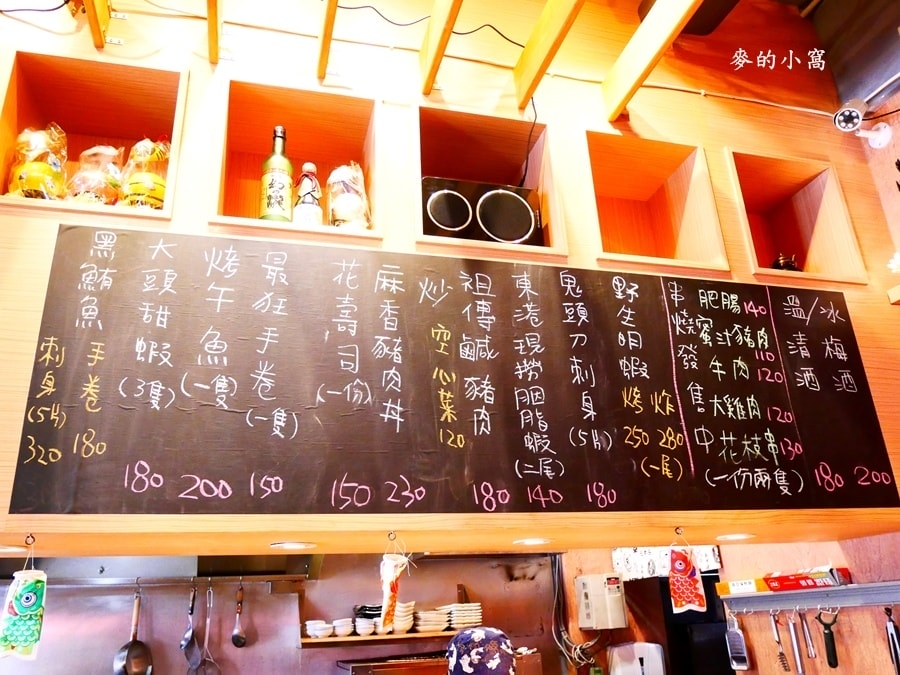 麥的小窩
黑鮪魚
手卷 180
刺身(5片) 320
大頭甜蝦(3隻) 180
烤午魚(一隻) 200
最狂手卷(一隻) 150
花壽司(一份) 150
麻香豬肉丼 230
炒空心菜 120
祖傳鹹豬肉 180
東港現撈胭脂蝦(二尾) 140
鬼頭刀刺身(5片) 180
野生明蝦
烤 250
炸 280
(一尾)
串燒發售中
肥腸 140
蜜汁豬肉 110
牛肉 120
大雞肉 120
花枝串 130
(一份兩隻)
溫/冰
清酒 180
梅酒 200